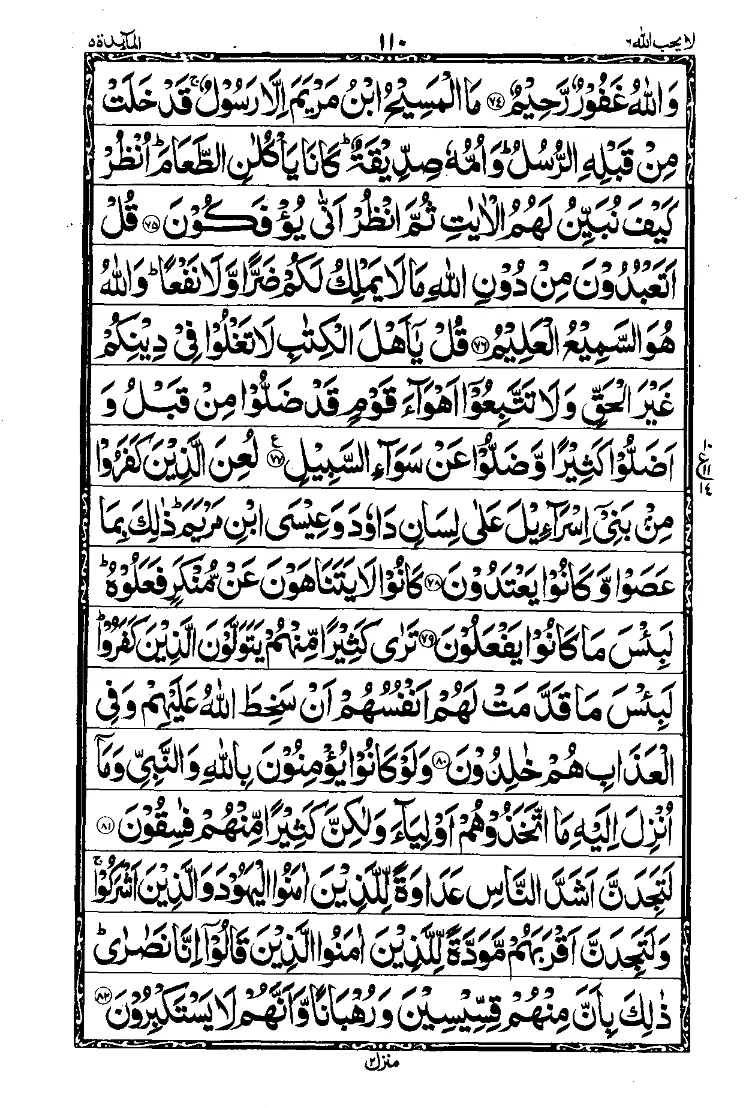 لا يحب الله ٦ ١١٠ المآىِٕدة ٥
وَاللّٰهُ غَفُوْرٌ رَّحِيْمٌ ﴿۷۴﴾ مَا الْمَسِيْحُ ابْنُ مَرْيَمَ اِلَّا رَسُوْلٌ ۚ قَدْ خَلَتْ
مِنْ قَبْلِهِ الرُّسُلُ ؕ وَاُمُّهٗ صِدِّيْقَةٌ ؕ كَانَا يَاْكُلٰنِ الطَّعَامَ ؕ اُنْظُرْ
كَيْفَ نُبَيِّنُ لَهُمُ الْاٰيٰتِ ثُمَّ انْظُرْ اَنّٰى يُؤْفَكُوْنَ ﴿۷۵﴾ قُلْ
اَتَعْبُدُوْنَ مِنْ دُوْنِ اللّٰهِ مَا لَا يَمْلِكُ لَكُمْ ضَرًّا وَّلَا نَفْعًا ؕ وَاللّٰهُ
هُوَ السَّمِيْعُ الْعَلِيْمُ ﴿۷۶﴾ قُلْ يٰۤاَهْلَ الْكِتٰبِ لَا تَغْلُوْا فِيْ دِيْنِكُمْ
غَيْرَ الْحَقِّ وَلَا تَتَّبِعُوْۤا اَهْوَآءَ قَوْمٍ قَدْ ضَلُّوْا مِنْ قَبْلُ وَ
اَضَلُّوْا كَثِيْرًا وَّضَلُّوْا عَنْ سَوَآءِ السَّبِيْلِ ﴿۷۷﴾ ع لُعِنَ الَّذِيْنَ كَفَرُوْا
١٠ ع ١١ ١٤
مِنْۢ بَنِيْۤ اِسْرَآءِيْلَ عَلٰى لِسَانِ دَاوٗدَ وَعِيْسَى ابْنِ مَرْيَمَ ؕ ذٰلِكَ بِمَا
عَصَوْا وَّكَانُوْا يَعْتَدُوْنَ ﴿۷۸﴾ كَانُوْا لَا يَتَنَاهَوْنَ عَنْ مُّنْكَرٍ فَعَلُوْهُ ؕ
لَبِئْسَ مَا كَانُوْا يَفْعَلُوْنَ ﴿۷۹﴾ تَرٰى كَثِيْرًا مِّنْهُمْ يَتَوَلَّوْنَ الَّذِيْنَ كَفَرُوْا ؕ
لَبِئْسَ مَا قَدَّمَتْ لَهُمْ اَنْفُسُهُمْ اَنْ سَخِطَ اللّٰهُ عَلَيْهِمْ وَفِي
الْعَذَابِ هُمْ خٰلِدُوْنَ ﴿۸۰﴾ وَلَوْ كَانُوْا يُؤْمِنُوْنَ بِاللّٰهِ وَالنَّبِيِّ وَمَاۤ
اُنْزِلَ اِلَيْهِ مَا اتَّخَذُوْهُمْ اَوْلِيَآءَ وَلٰكِنَّ كَثِيْرًا مِّنْهُمْ فٰسِقُوْنَ ﴿۸۱﴾
لَتَجِدَنَّ اَشَدَّ النَّاسِ عَدَاوَةً لِّلَّذِيْنَ اٰمَنُوا الْيَهُوْدَ وَالَّذِيْنَ اَشْرَكُوْا ۚ
وَلَتَجِدَنَّ اَقْرَبَهُمْ مَّوَدَّةً لِّلَّذِيْنَ اٰمَنُوا الَّذِيْنَ قَالُوْۤا اِنَّا نَصٰرٰى ؕ
ذٰلِكَ بِاَنَّ مِنْهُمْ قِسِّيْسِيْنَ وَرُهْبَانًا وَّاَنَّهُمْ لَا يَسْتَكْبِرُوْنَ ﴿۸۲﴾
منزل ٢